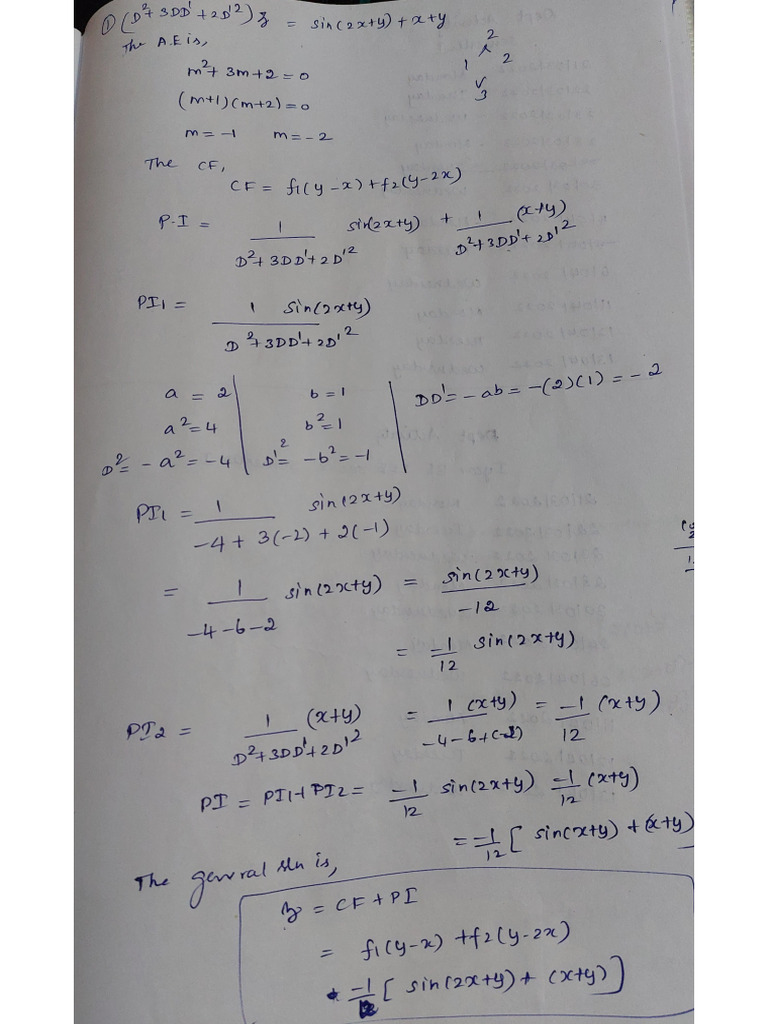 ① (D²+3DD'+2D'²) z = sin(2x+y)+x+y
The A.E is,
m²+3m+2=0
(m+1)(m+2)=0
m=-1 m=-2
2
1 2
3
The CF,
CF = f1(y-x)+f2(y-2x)
P.I = 1/(D²+3DD'+2D'²) sin(2x+y) + 1/(D²+3DD'+2D'²) (x+y)
PI1 = 1/(D²+3DD'+2D'²) sin(2x+y)
a = 2 | b=1 | DD'=-ab=-(2)(1)=-2
a²=4 | b²=1
D²=-a²=-4 | D'²=-b²=-1
PI1 = 1/(-4+3(-2)+2(-1)) sin(2x+y)
= 1/(-4-6-2) sin(2x+y) = sin(2x+y)/-12
= -1/12 sin(2x+y)
PI2 = 1/(D²+3DD'+2D'²) (x+y) = 1/(-4-6+(-2)) (x+y) = -1/12 (x+y)
PI = PI1+PI2 = -1/12 sin(2x+y) -1/12 (x+y)
= -1/12 [ sin(x+y)+(x+y)
The general sln is,
z = CF+PI
= f1(y-x)+f2(y-2x)
-1/12 [ sin(2x+y)+(x+y)]